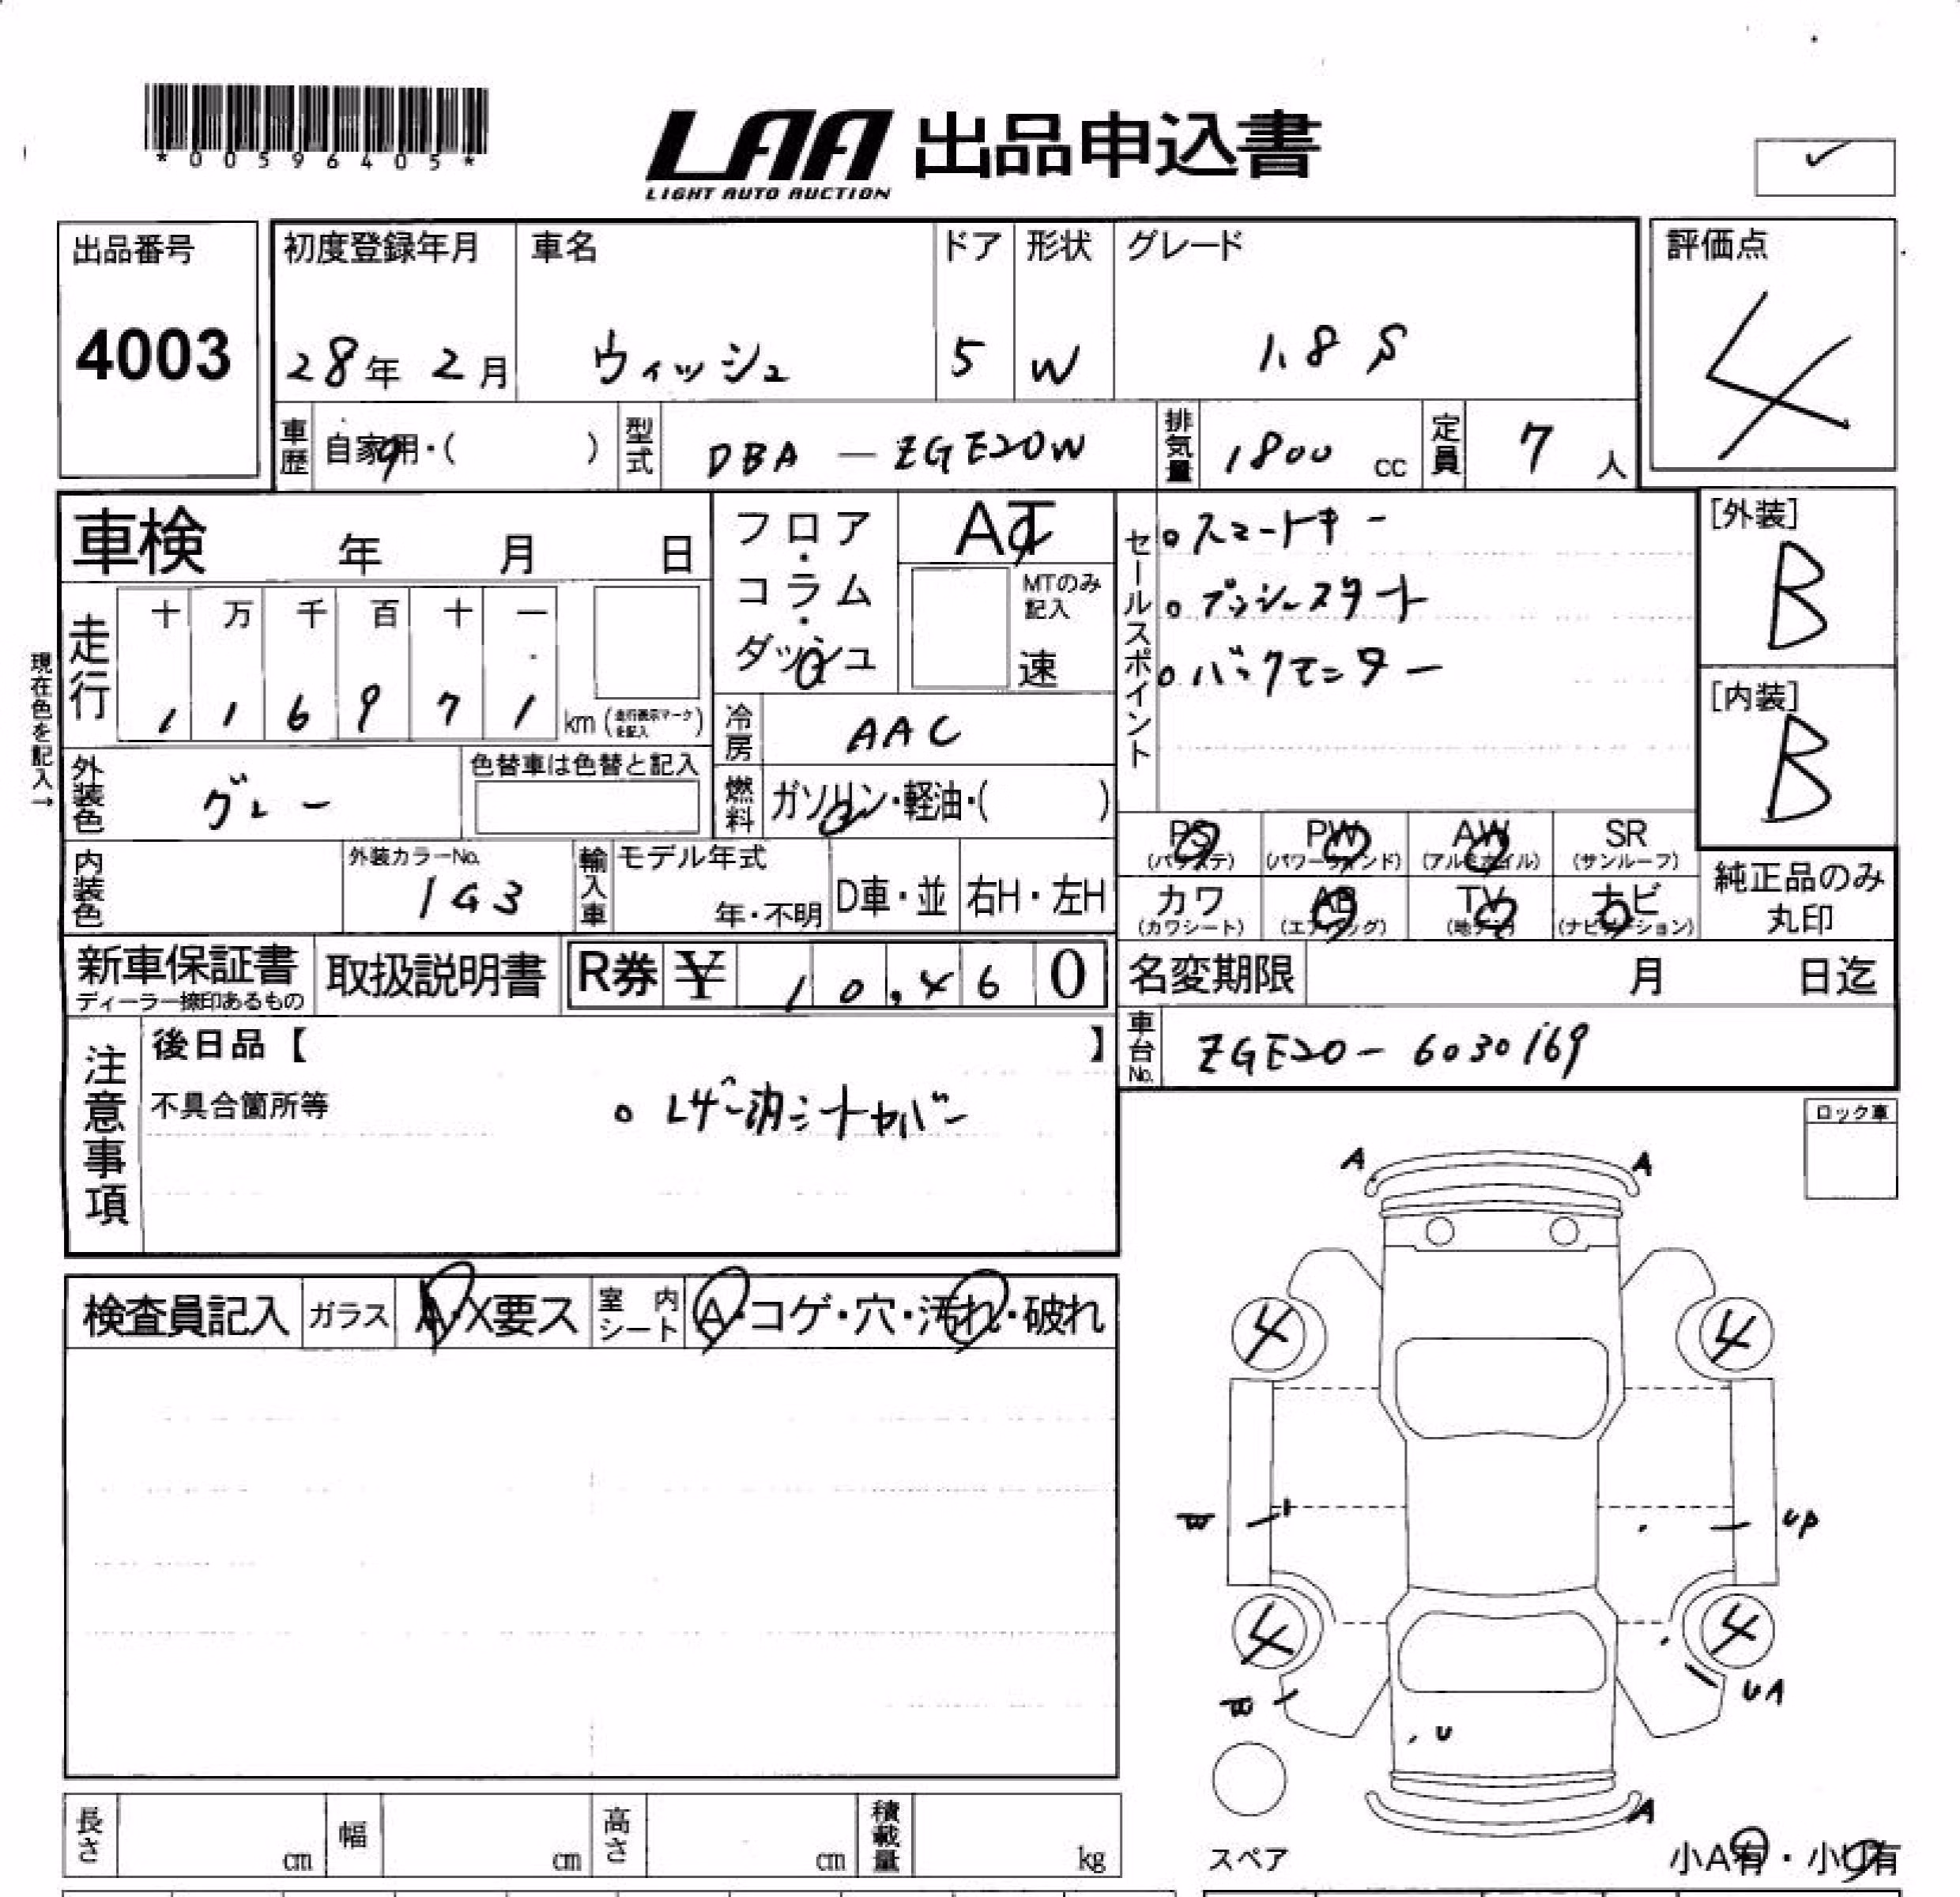 *00596405*
LAA 出品申込書
LIGHT AUTO AUCTION
出品番号
4003
初度登録年月
28年 2月
車名
ウィッシュ
ドア
5
形状
W
グレード
1.8 S
評価点
4
車歴 自家用・( )
型式 DBA-ZGE20W
排気量 1800 cc
定員 7 人
車検 年 月 日
フロア・コラム・ダッシュ
AT
MTのみ記入
速
セールスポイント
。スマートキー
。プッシュスタート
。バックモニター
[外装]
B
[内装]
B
現在色を記入→
走行 十 万 千 百 十 一
1 1 6 9 7 1 km (走行表示マークを記入)
冷房 AAC
外装色 グレー
色替車は色替と記入
燃料 ガソリン・軽油・( )
PS (パワステ) PW (パワーウィンド) AW (アルミホイル) SR (サンルーフ)
カワ (カワシート) AB (エアバッグ) TV (地デジ) ナビ (ナビゲーション)
純正品のみ丸印
内装色
外装カラーNo.
1G3
輸入車 モデル年式
年・不明 D車・並 右H・左H
新車保証書
ディーラー捺印あるもの
取扱説明書
R券 ¥ 10,460
名変期限 月 日迄
車台No. ZGE20-6030169
注意事項
後日品【 】
不具合箇所等
ロック車
検査員記入 ガラス A・X要ス 室内シート A・コゲ・穴・汚れ・破れ
A A
4 4
W UP
4 4
W UA
U
A
スペア
小A有・小U有
長さ cm 幅 cm 高さ cm 積載量 kg